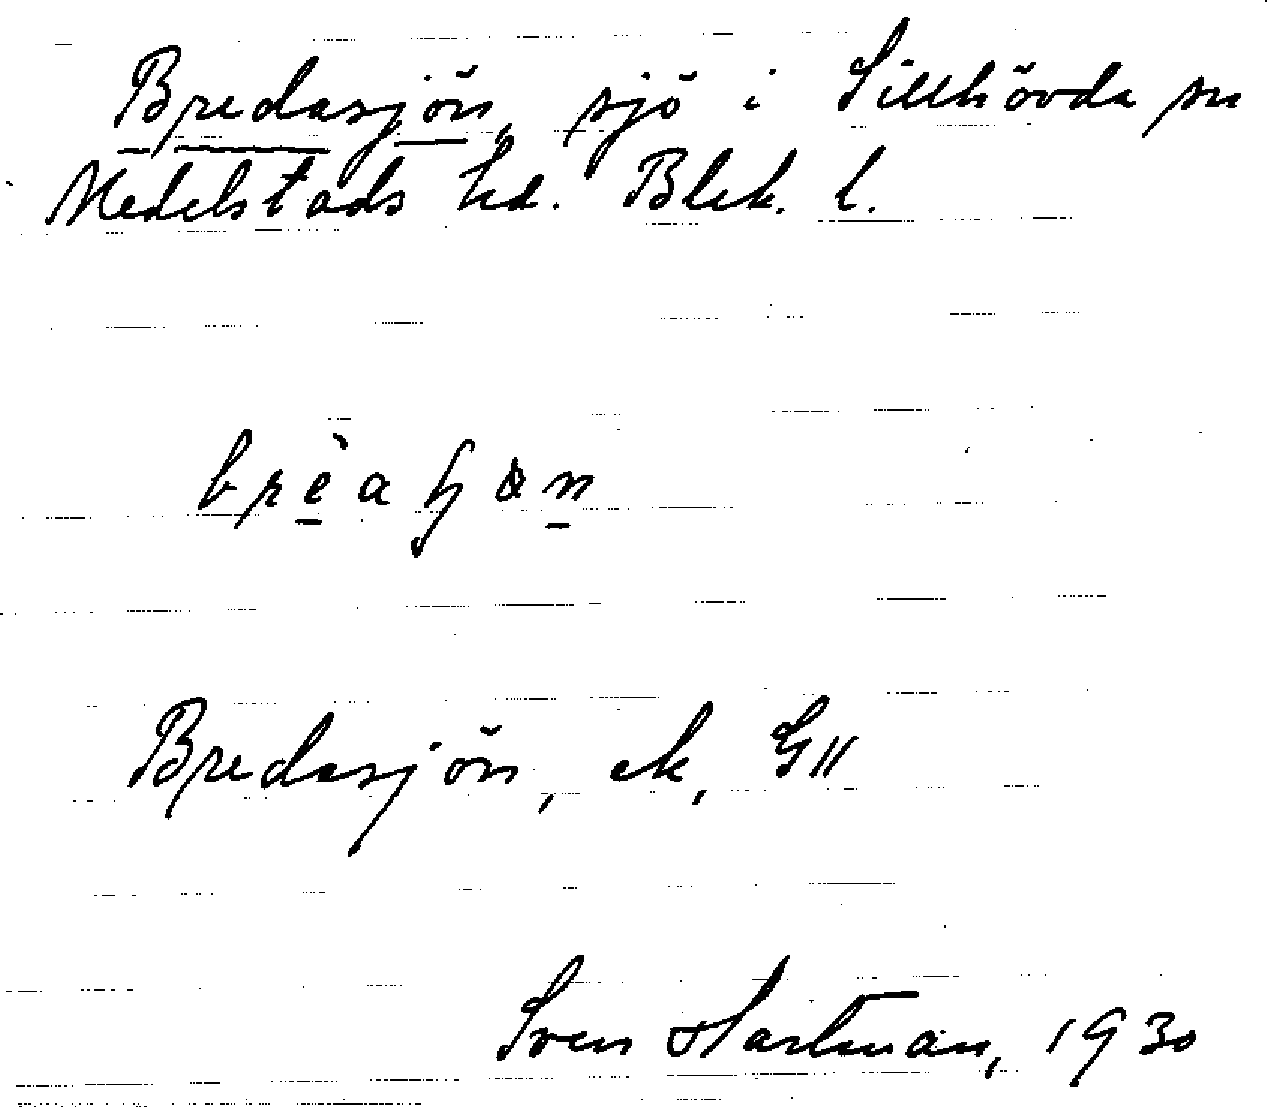 Bredasjön, sjö i Sillhövda sn
Medelstads hd. Blek. l.
Bredasjön, ek, G11
Sven Hartman, 1930